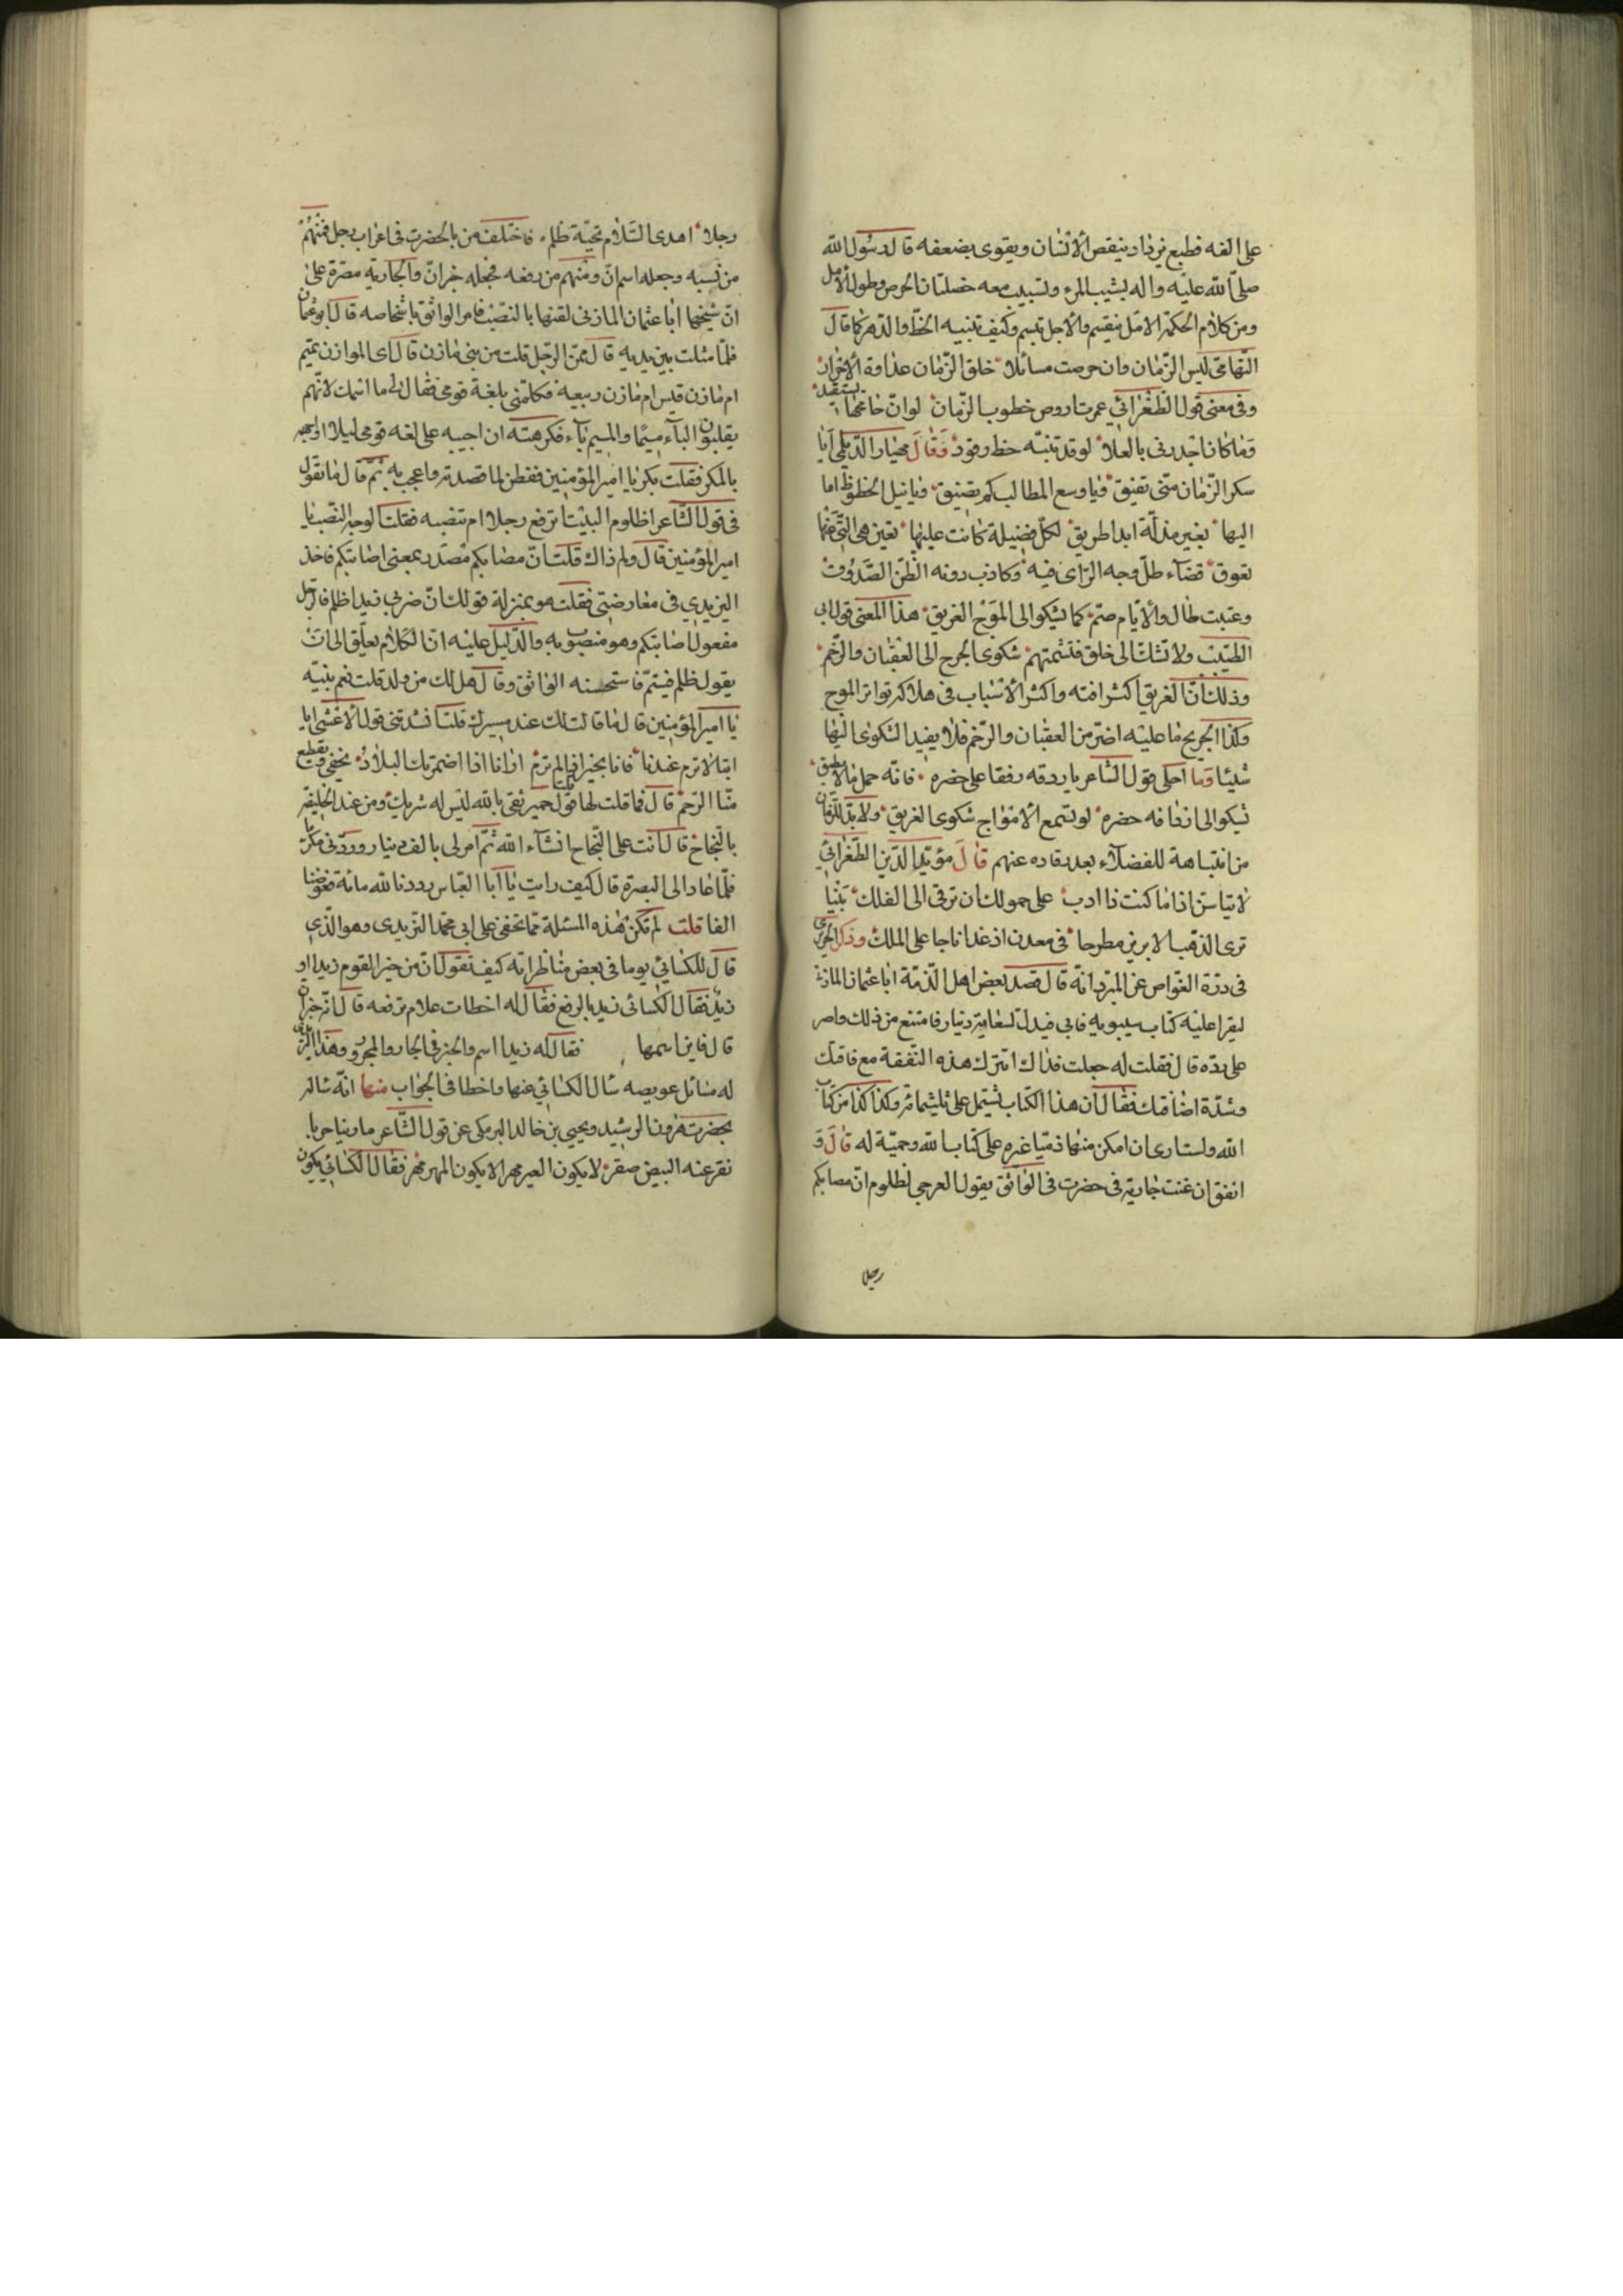 على الفه فطبع يزداد بنقص الانسان ويقوى بضعفه قال رسول الله
صلى الله عليه واله يشيب المرء وتشبيب معه خصلتان الحرص وطول الامل
ومن كلام الحكمة الامل يقيم والاجل تبسم وكيف تنبيه الحظ والدهر كما قال
التهامى ليس الزمان وان حرصت مسائلا خلق الزمان عداوة الاحرار
وفى معنى قول الطغرائي عمرت اروض خطوب الزمان لو ان جامحها يستقيد
وما كان اجدرنى بالعلا لو قد تنبه حظ رقود وقال مهيار الديلمي ايا
سكر الزمان متى تفيق ويا وسع المطالب كم تضيق ويا نيل الحظوظ اما
اليها بغير مذلة ابدا طريق لكل فضيلة كانت عليها تعين هى التى عنها
تعوق قضاء طل وجه الراى فيه وكاذب دونه الظن الصدوق
وعتبت طال والايام صم كما يشكوا الى الموج الغريق هذا المعنى قول ابى
الطيب ولا تشك الى خلق فتشمتهم شكوى الجرح الى العقبان والرخم
وذلك ان الغريق اكثر افته واكثر الاسباب فى هلاكه تواتر الموج
وكذا الجريح ما عليه اضر من العقبان والرخم فلا يفيد الشكوى اليها
شيئا وما احلى قول الشاعر يا ردفه رفقا على خصره فانه حمل ما لا يطيق
شيكوا الى ارفافه خصره لو تسمع الامواج شكوى الغريق ولا بد للزمان
من انتباهة للفضلاء بعد رقاده عنهم قال مؤيد الدين الطغرائي
لا تياسن اذا ما كنت ذا ادب على خمولك ان ترقى الى الفلك بينا
ترى الذهب الابريز مطروحا فى معدن اذ غدا تاجا على الملك وذكر الحريرى
فى درة الغواص عن المبرد انه قال قصد بعض اهل الذمة ابا عثمان المازنى
ليقرا عليه كتاب سيبويه فابى فبذل له مائة دينار فامتنع من ذلك واصر
على رده قال فقلت له جعلت فداك اتترك هذه النفقة مع فاقتك
وشدة اضاقتك فقال ان هذا الكتاب يشتمل على ثلثمائة وكذا كذا من كتاب
الله ولست ارى ان امكن منها ذميا غيره على كتاب الله وحمية له قال و
اتفق ان غنت جارية فى حضرت فى الواثق بقول العرجى اظلوم ان مصابكم
رجلا
رجلا اهدى السلام تحية ظلم فاختلف من بالحضرت فى اعراب رجل فمنهم
من نصبه وجعله اسم ان ومنهم من رفعه فجعله خبر ان والجارية مصرة على
ان شيخها ابا عثمان المازنى لقنها بالنصب فامر الواثق باشخاصه قال ابو عثمان
فلما مثلت بين يديه قال ممن الرجل قلت من بنى مازن قال اى الموازن تميم
ام مازن قيس ام مازن ربيعه فكلمنى بلغة قومى فقال لى ما اسمك لانهم
يقلبون الباء ميما والميم باء فكرهت ان اجيبه على لغه قومى ليلا اواجهه
بالمكر فقلت بكر يا امير المؤمنين ففطن لما قصدته واعجب به ثم قال ما تقول
فى قول الشاعر اظلوم البيت اترفع رجلا ام تنصبه فقلت الوجه النصب يا
امير المؤمنين قال ولم ذاك قلت ان مصابكم مصدر بمعنى اصابتكم فاخذ
اليزيدي فى معارضتى فقلت هو بمنزلة قولك ان ضربك زيدا ظلم فالرجل
مفعول اصابتكم وهو منصوب به والدليل عليه ان الكلام معلق الى ان
يقول ظلم فيتم فاستحسنه الواثق وقال هل لك من ولد قلت نعم بنيه
يا امير المؤمنين قال ما قالت لك عند مسيرك قلت انشدتنى قول الاعشى ايا
ابتا لا ترم عندنا فانا بخير اذا لم ترم ارانا اذا اضمرتك البلاد نجفى وتقطع
منا الرحم قال فما قلت لها قلت قول جرير ثقى بالله ليس له شريك ومن عند الخليفة
بالنجاح قال انت على النجاح انشاء الله ثم امر لى بالف دينار وردنى مكرما
فلما عاد الى البصرة قال كيف رايت يا ابا العباس رددنا لله مائة فعوضنا
الفا قلت لم تكن هذه المسئلة مما تخفى على ابى محمد اليزيدى وهو الذى
قال للكسائي يوما فى بعض مناظراته كيف تقول ان من خير القوم زيدا او
زيد فقال الكسائى زيد بالرفع فقال له اخطات علام ترفعه قال انه خبر ان
قال فاين اسمها فقال له زيدا اسم والخبر فى الجار والمجرور وهذا اليزيدى
له مسائل عويصه سال الكسائي عنها واخطا فى الجواب منها انه ساله
بحضرت هرون الرشيد ويحيى بن خالد البرمكى عن قول الشاعر ما راينا خربا
نقر عنه البيض صقر لا يكون العير مهرا لا يكون المهر مهر فقال الكسائي يكون